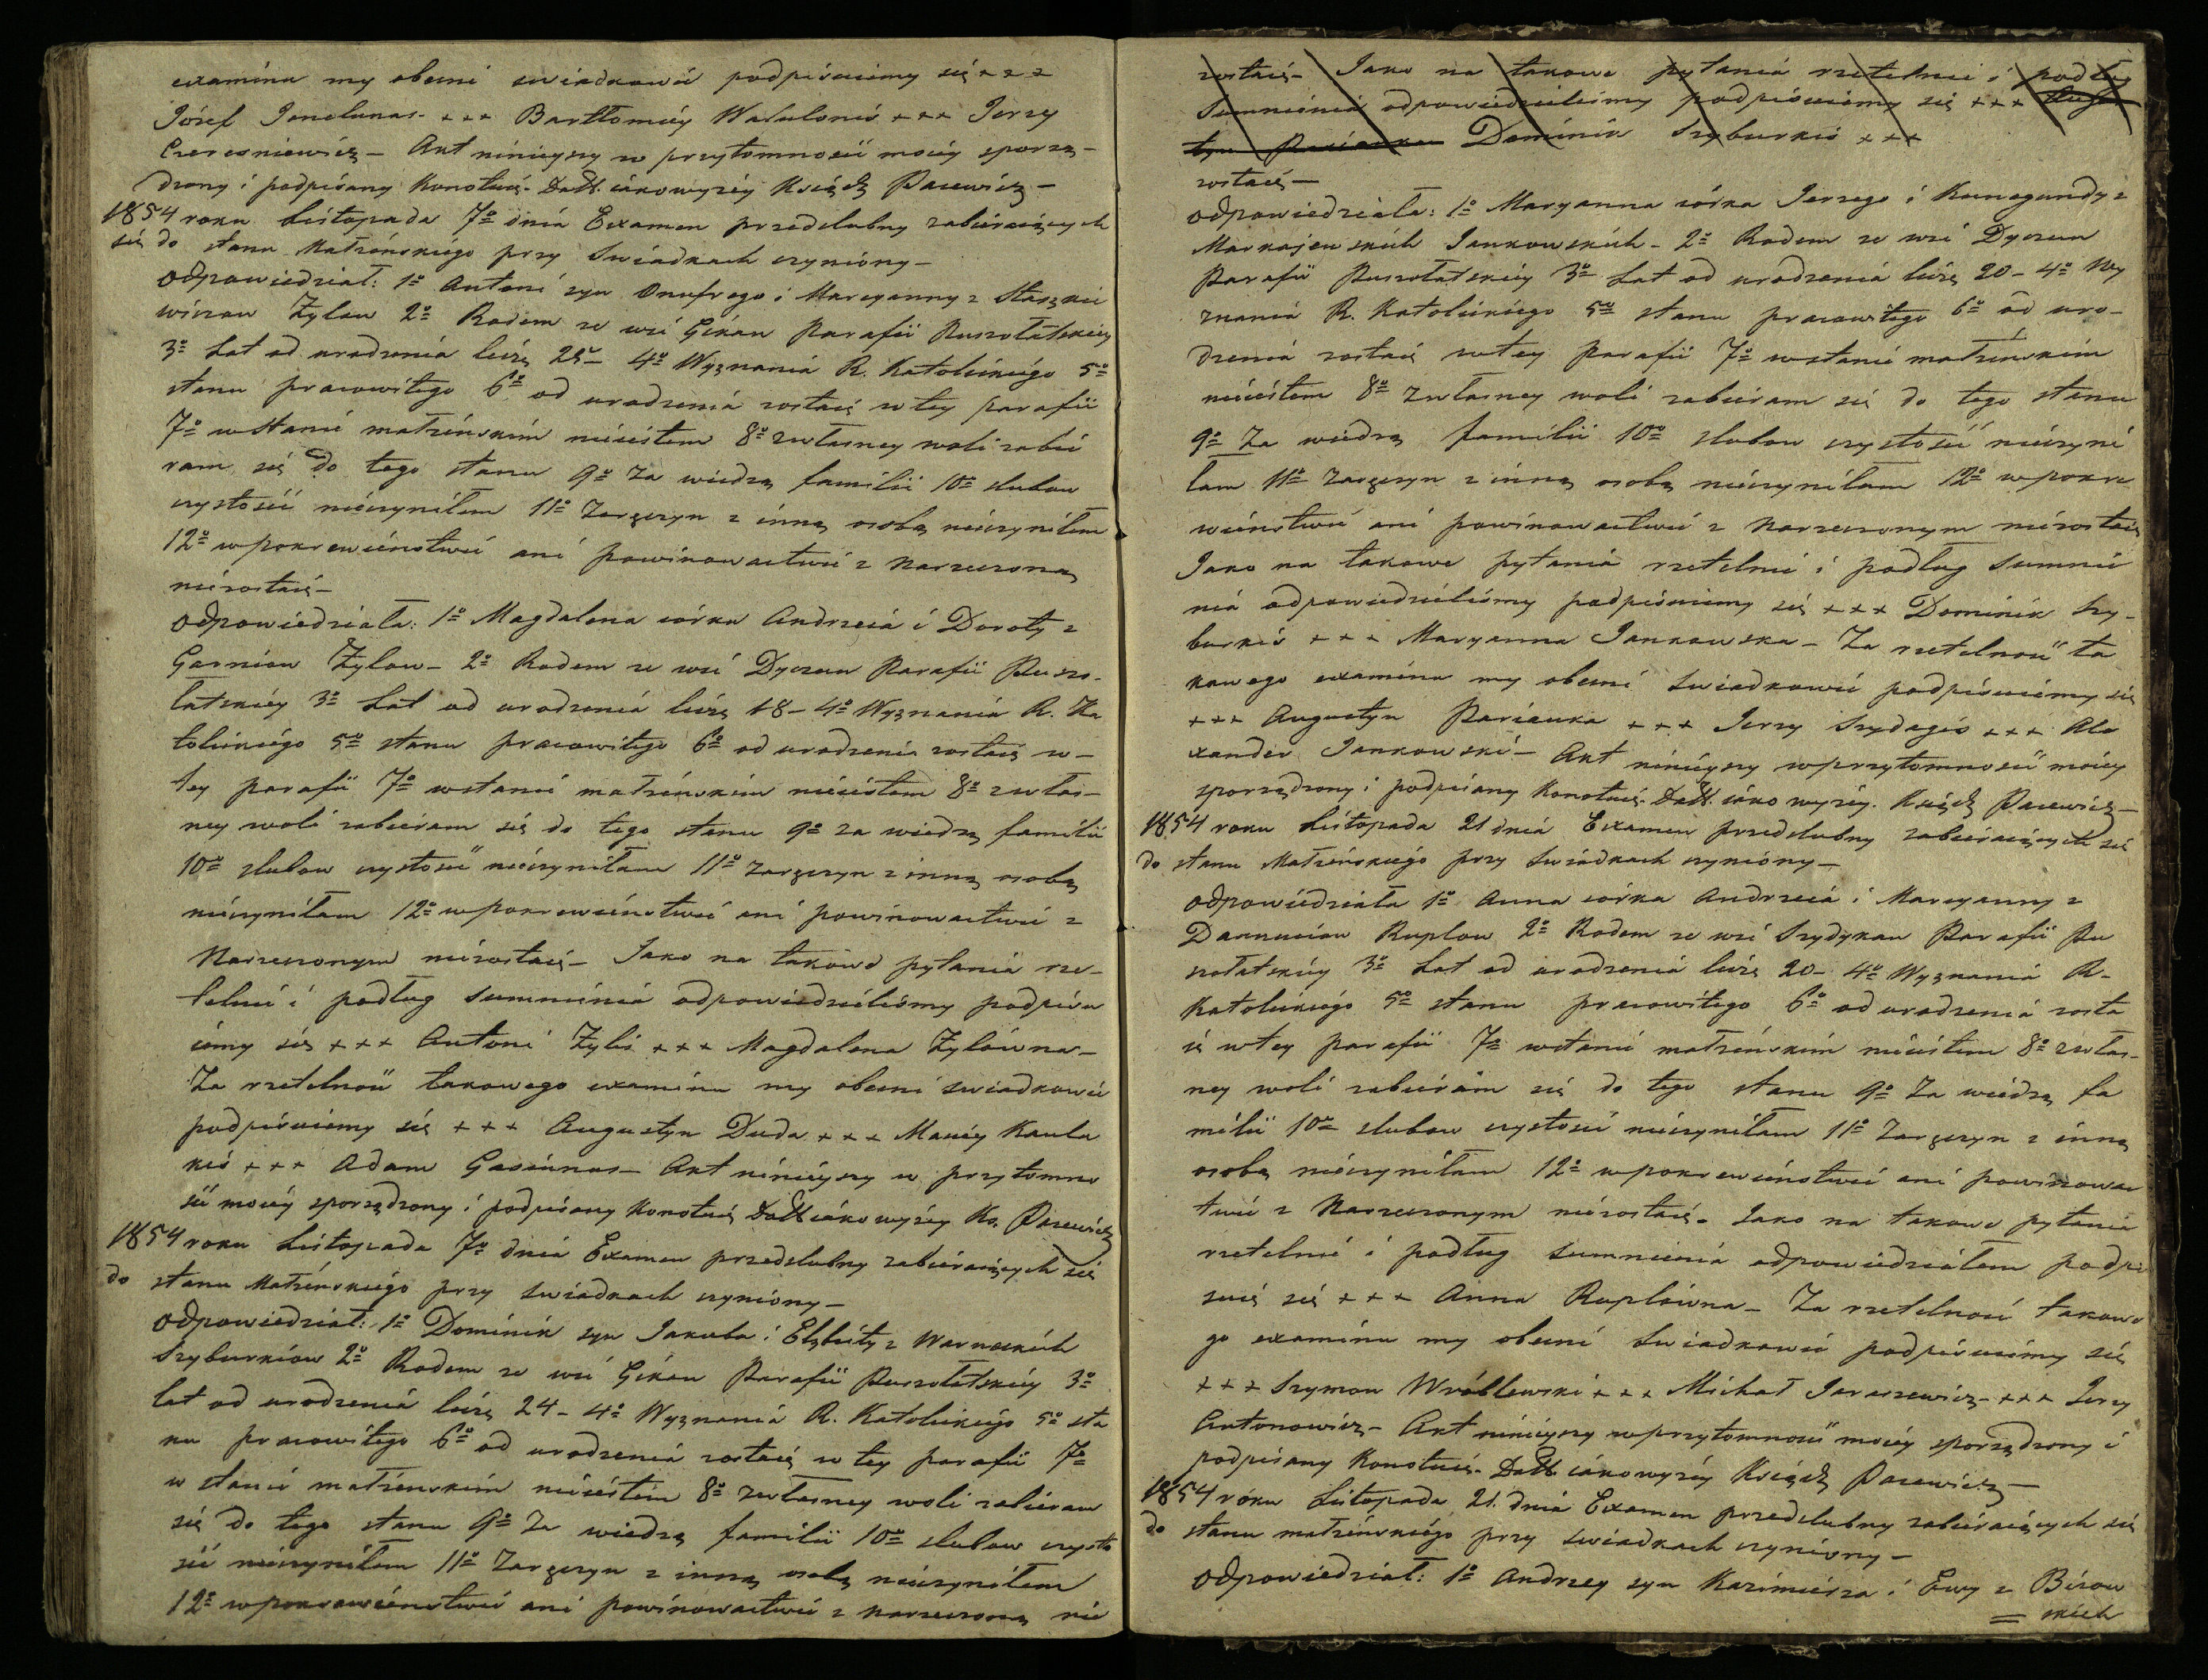 examinu my obecni swiadkowie podpisuiemy się +++
Józef Janelunas +++ Bartłomiéy Waluloniś +++ Jerzy
Czeresniewicz — Akt ninieyszy w przytomności moiéy sporzą-
dzony i podpisany Konotuię. Datt iako wyżéy Ksiądz Pacewicz —
1854 roku Listopada 7º dnia Examen przedslubny zabieraiących
się do stanu Małżeńskiégo przy Swiadkach czyniony —
Odpowiedział: 1º Antoni syn Onufrego i Maryanny z Staszkie
wiczow Żylow 2º Rodem ze wsi Gikan Parafii Puszołatskiey
3º Lat od urodzenia liczę 25 — 4º Wyznania R. Katolickiégo 5º
stanu pracowitego 6º od urodzenia zostaię w tey parafii
7º w stanie małżeńskim nieiestem 8º z własney woli zabie
ram się do tego stanu 9º Za wiedzą familii 10º slubow
czystości nieczyniłem 11º Zaręczyn z inną osobą nieczyniłem
12º w pokrewienstwie ani powinowactwie z Narzeczoną
niezostaię —
Odpowiedziała: 1º Magdalena córka Andrzeia i Doroty z
Garniow Żylow — 2º Rodem ze wsi Dyczun Parafii Puszo-
łatskiéy 3º Lat od urodzenia liczę 18 — 4º Wyznania R. Ka
tolickiégo 5º stanu pracowitego 6º od urodzenia zostaię w —
tey parafii 7º w stanie małżeńskim nieiestem 8º z włas-
ney woli zabieram się do tego stanu 9º za wiedzą familii
10º slubow czystości nieczyniłam 11º zaręczyn z inną osobą
nieczyniłam 12º w pokrewienstwie ani powinowactwie z
Narzeczonym niezostaię — Jako na takowe pytania rze-
telnie i podług Summienia odpowiedzieliśmy podpisu
iemy się +++ Antoni Żylis +++ Magdalena Żylówna —
Za rzetelność takowego examinu my obecni swiadkowie
podpisuiemy się +++ Augustyn Duda +++ Maciéy Kaula
kis +++ Adam Gasiunas — Akt ninieyszy w przytomno
ści moiéy sporządzony i podpisany Konotuię Datt iako wyżéy Ks. Pacewicz
1854 roku Listopada 7º dnia Examen przedslubny zabieraiących się
do stanu Małżeńskiégo przy Swiadkach czyniony —
Odpowiedział: 1º Dominik syn Jakuba i Elżbiéty z Warnackich
Szyburkiow 2º Rodem ze wsi Gikan Parafii Puszołatskiéy 3º
lat od urodzenia liczę 24 — 4º Wyznania R. Katolickiégo 5º sta
nu pracowitego 6º od urodzenia zostaię w tey parafii 7º
w stanie małżeńskim nieiestem 8º z własney woli zabieram
się do tego stanu 9º Za wiedzą familii 10º slubow czysto
ści nieczyniłem 11º Zaręczyn z inną osobą nieczyniłem
12º w pokrewienstwie ani powinowactwie z narzeczoną nie
zostaię — Jako na takowe pytania rzetelnie i podług
Summienia odpowiedzieliśmy podpisuiemy się +++
Dominik Szyburkis +++
zostaię —
Odpowiedziała: 1º Maryanna córka Jerzego i Kunegundy z
Markajewskich Jankowskich — 2º Rodem ze wsi Dyczun
Parafii Puszołatskiéy 3º Lat od urodzenia liczę 20 — 4º Wy
znania R. Katolickiégo 5º stanu pracowitego 6º od uro-
dzenia zostaię w tey Parafii 7º w stanie małżenskim
nieiestem 8º z własney woli zabieram się do tego stanu
9º Za wiedzą familii 10º slubow czystości nieczyni
łam 11º Zaręczyn z inną osobą nieczyniłam 12º w pokre
wienstwie ani powinowactwie z Narzeczonym niezostaię
Jako na takowe pytania rzetelnie i podług Summie
nia odpowiedzieliśmy podpisuiemy się +++ Dominik Szy-
burkis +++ Maryanna Jankowska — Za rzetelność ta
kowego examinu my obecni Swiadkowie podpisuiemy się
+++ Augustyn Parianka +++ Jerzy Szydagis +++ Ale
xander Jankowski — Akt ninieyszy w przytomności moiéy
sporządzony i podpisany Konotuię. Datt. iako wyżéy. Ksiądz Pacewicz —
1854 roku Listopada 21 dnia Examen przedslubny zabieraiących się
do stanu Małżeńskiégo przy Swiadkach czyniony —
Odpowiedziała 1º Anna córka Andrzeia i Maryanny z
Dauknciow Ruplow 2º Rodem ze wsi Szydykan Parafii Pu
szołatskiéy 3º Lat od urodzenia liczę 20 — 4º Wyznania R.
Katolickiégo 5º stanu pracowitego 6º od urodzenia zosta
ię w tey parafii 7º w stanie małżeńskim nieiestem 8º z włas-
ney woli zabieram się do tego stanu 9º Za wiedzą fa
milii 10º slubow czystości nieczyniłam 11º Zaręczyn z inną
osobą nieczyniłam 12º w pokrewienstwie ani powinowac
twie z Narzeczonym niezostaię. Jako na takowe pytania
rzetelnie i podług Summienia odpowiedziałam podpi
suię się +++ Anna Ruplówna — Za rzetelność takowe
go examinu my obecni Swiadkowie podpisuiemy się
+++ Szymon Wróblewski +++ Michał Jaraszewicz +++ Jerzy
Antonowicz — Akt ninieyszy w przytomności moiéy sporządzony i
podpisany Konotuię. Datt. iako wyżéy Ksiądz Pacewicz —
1854 roku Listopada 21. dnia Examen przedslubny zabieraiących się
do stanu małżeńskiégo przy swiadkach czyniony —
Odpowiedział: 1º Andrzey syn Kazimierza i Ewy z Birow
= skich